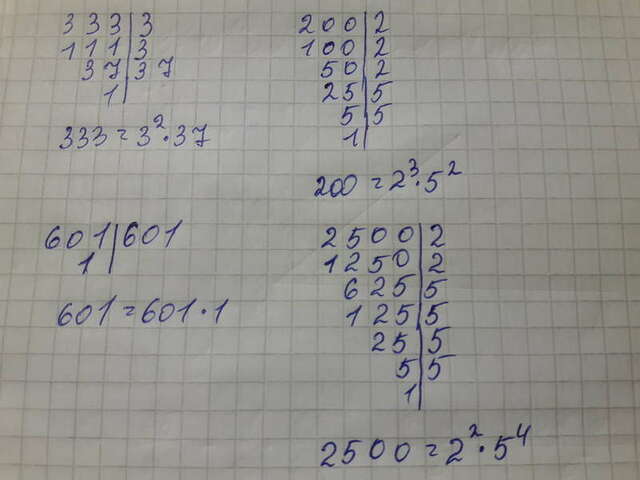 333|3
111|3
37|37
1|
333 = 3²·37
601|601
1|
601 = 601·1
200|2
100|2
50|2
25|5
5|5
1|
200 = 2³·5²
2500|2
1250|2
625|5
125|5
25|5
5|5
1|
2500 = 2²·5⁴